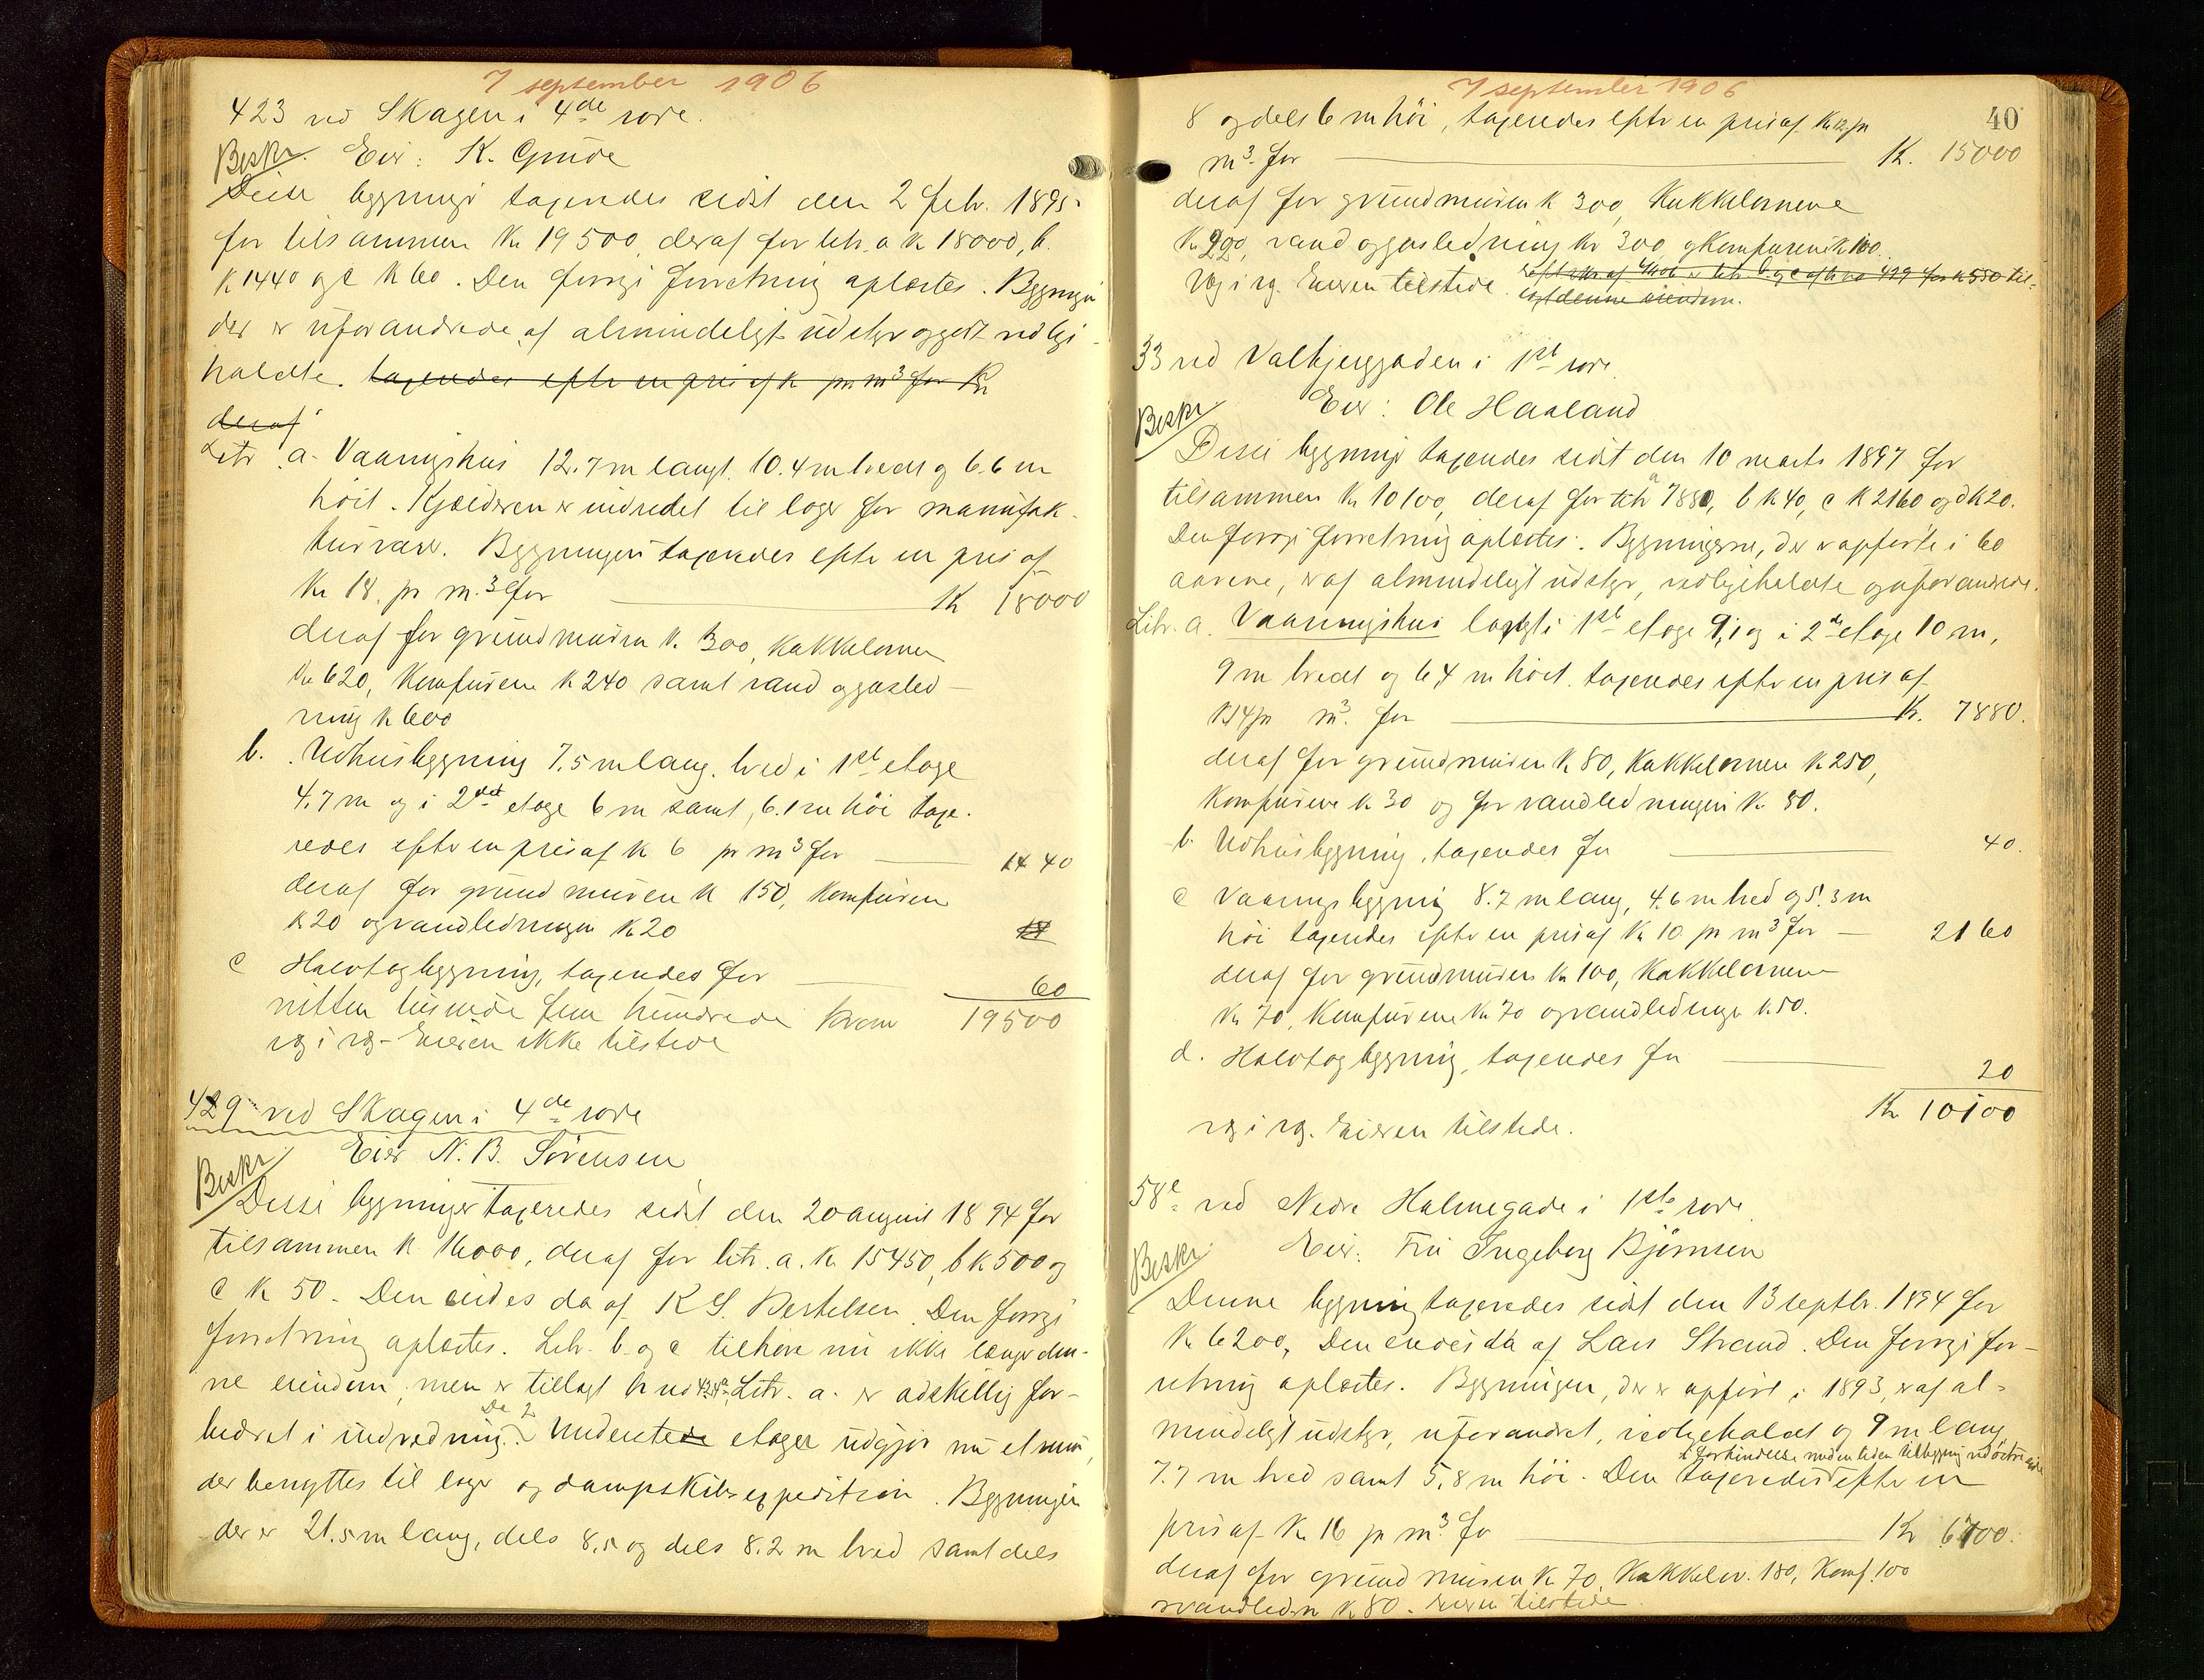 7 september 1906
423 ved Skagen i 4de rode.
Beskr. Eier: K. Grude
Disse bygninger taxeredes sidst den 2 febr. 1895
for tilsammen Kr 19500, deraf for litr. a k 18000, b.
k 1440 og c k 60. Den forrige forretning oplæstes. Bygninger
der er uforandrede, af almindeligt udstyr og godt vedlige-
holdte. taxeredes efter en pris af k pr m3 for Kr
deraf
Litr a. Vaaningshus 12.7 m langt. 10.4 m bredt og 6.6 m
høit. Kjælderen er indredet til lager for manufak-
turvarer. Bygningen taxeredes efter en pris af
Kr 18. pr m.3 for K 18000
deraf for grundmuren k. 300, Kakkelovnene
Kr 620, Komfurene k 240 samt vand og gasled-
ning k 600
b. Udhusbygning 7.5 m lang. bred i 1ste etage
4.7 m og i 2den etage 6 m samt, 6.1 m høi taxe-
redes efter en pris af k 6 pr m3 for 1440
deraf for grundmuren k 150, Komfuren
k 20 og vandledningen k 20
c Halvtagbygning, taxeredes for 60
nitten tusinde fem hundrede kroner 19500
rq i rq - Eieren ikke tilstede
429 ved Skagen i 4de rode
Eier N. B. Sørensen
Beskr
Disse bygninger taxeredes sidst den 20 august 1894 for
tilsammen k 16000, deraf for litr. a. kr 15450, b k 500 og
c k 50. Den eiedes da af K S. Bertelsen. Den forrige
forretning oplæstes. Litr. b og c tilhører nu ikke længer den-
ne eiendom, men er tillagt Litr. a. er adskillig for-
bedret i indredning. De 2 etager udgjør nu et rum,
der benyttes til lager og dampskibsexpedition. Bygningen
der er 21.5 m lang, dels 8.5 og dels 8.2 m bred samt dels
7 september 1906
40
8 og dels 6 m høi, taxeredes efter en pris af kr 12 pr
m3. for K. 15000
deraf for grundmuren k 300, Kakkelovnene
k 200, vand og gasledning kr 300 og Komfuren k 100.
rq i rq. Eieren tilstede. litr b og c af 429 for k 550 til-
lagt denne eiendom.
33 ved Valbjerggaden i 1ste rode.
Eier: Ole Haaland
Beskr
Disse bygninger taxeredes sidst den 10 marts 1897 for
tilsammen kr 10100, deraf for litr a 7880, b k 40, c k 2160 og d k 20.
Den forrige forretning oplæstes. Bygningerne, der er opførte i 60
aarene, er af almindeligt udstyr, vedligeholdte og uforandrede.
Litr. a. Vaaningshus langt i 1ste etage 9,1 og i 2den etage 10 m,
9 m bredt og 6.4 m høit. taxeredes efter en pris af
k 14 pr m3. for Kr. 7880.
deraf for grundmuren k 80, Kakkelovnene k 250,
Komfurene k 30 og for vandledningen k 80.
b. Udhusbygning, taxeredes for 40.
c Vaaningsbygning 8.7 m lang, 4.6 m bred og 5.3 m
høi taxeredes efter en pris af kr 10 pr m3 for 2160
deraf for grundmuren k 100, Kakkelovnene
kr 70, Komfurene kr 70 og vandledningen k 50.
d. Halvtagbygning, taxeredes for 20
Kr 10100
rq i rq. Eieren tilstede.
58e ved Nedre Holmegade i 1ste rode.
Eier: Fru Ingeborg Bjørnsen
Beskr
Denne bygning taxeredes sidst den 13 septbr. 1894 for
kr 6200, Den eiedes da af Lars Strand. Den forrige for-
retning oplæstes. Bygningen, der er opført i 1893, er af al-
mindeligt udstyr, uforandret, vedligeholdt og 9 m lang
i forbindelse med en liden tilbygning ved østre side
7.7 m bred samt 5,8 m høi. Den taxeredes efter en
pris af kr 16 pr m3. for Kr 6700.
deraf for grundmuren k 70, Kakkelov. 180, Komf. 100
og vandledn k 80. Eieren tilstede